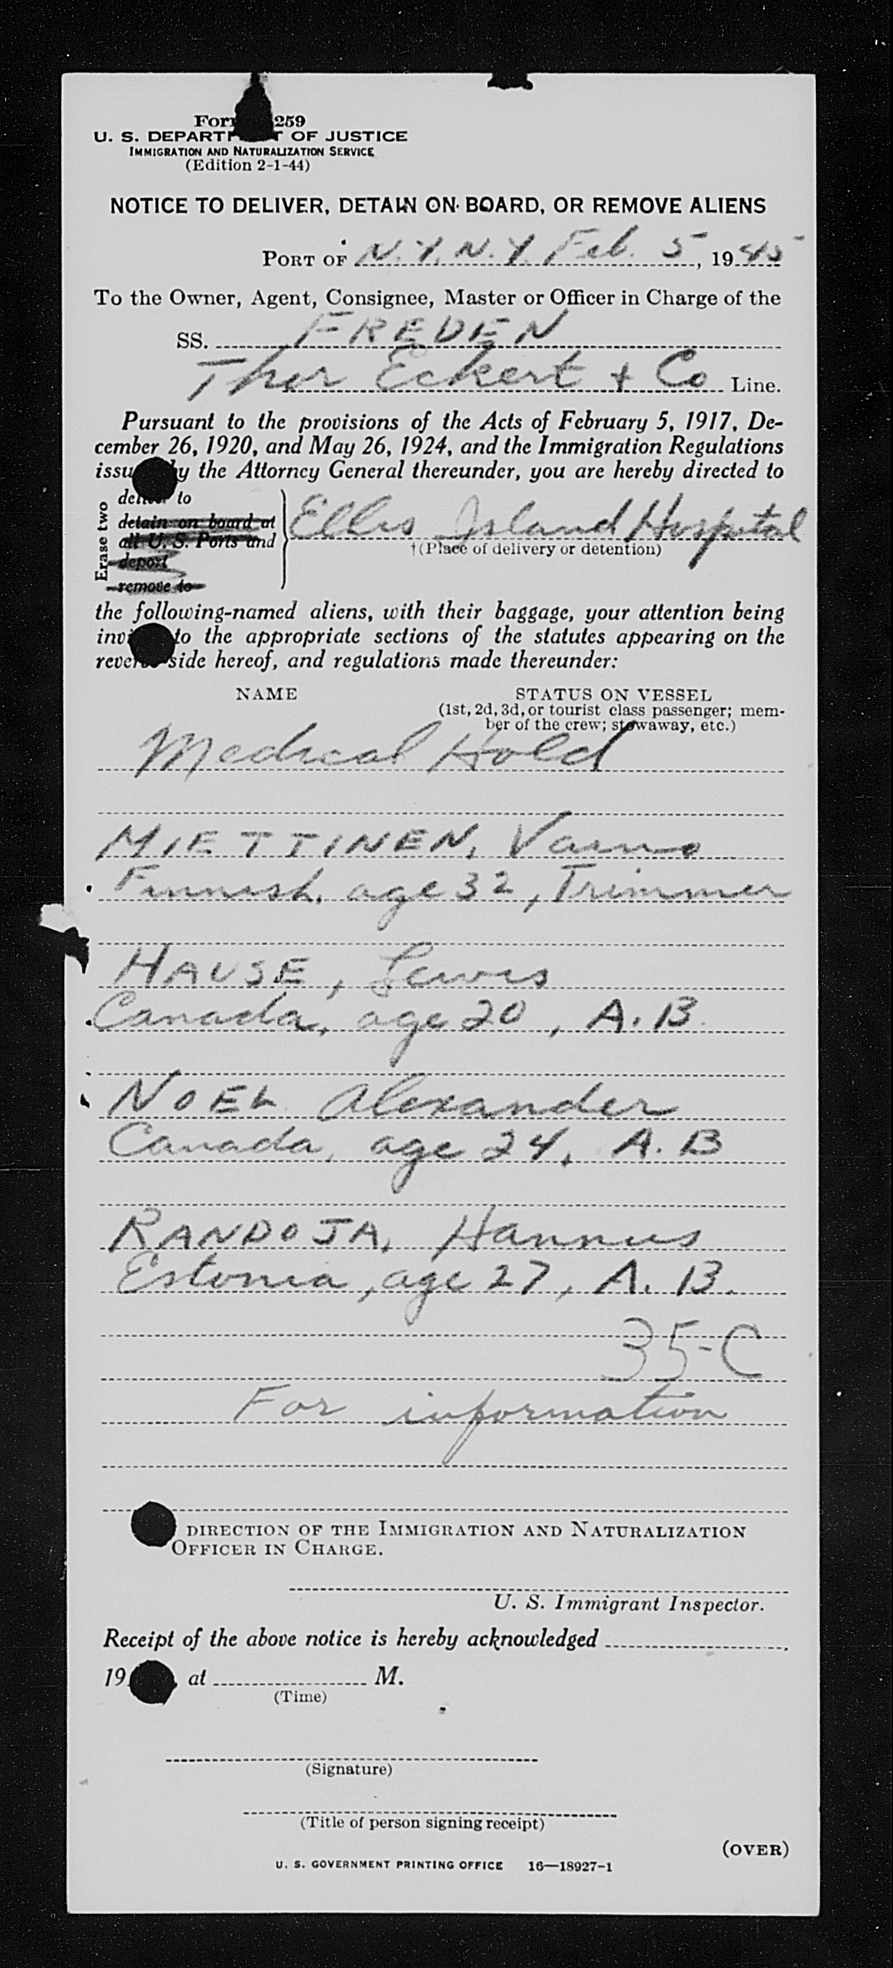 Form 259
U. S. DEPARTMENT OF JUSTICE
IMMIGRATION AND NATURALIZATION SERVICE
(Edition 2-1-44)
NOTICE TO DELIVER, DETAIN ON BOARD, OR REMOVE ALIENS
PORT OF N.Y. N.Y. Feb. 5, 1945
To the Owner, Agent, Consignee, Master or Officer in Charge of the
SS. FREDEN
Thor Eckert + Co Line.
Pursuant to the provisions of the Acts of February 5, 1917, De-
cember 26, 1920, and May 26, 1924, and the Immigration Regulations
issued by the Attorney General thereunder, you are hereby directed to
Erase two
deliver to
detain on board at
all U. S. Ports and
deport
remove to
Ellis Island Hospital
†(Place of delivery or detention)
the following-named aliens, with their baggage, your attention being
invited to the appropriate sections of the statutes appearing on the
reverse side hereof, and regulations made thereunder:
NAME STATUS ON VESSEL
(1st, 2d, 3d, or tourist class passenger; mem-
ber of the crew; stowaway, etc.)
Medical Hold
MIETTINEN, Vaino
Finnish, age 32, Trimmer
HAUSE, Lewis
Canada, age 20, A.B.
NOEL Alexander
Canada, age 24, A.B
RANDOJA, Hannus
Estonia, age 27, A.B.
35-C
For information
DIRECTION OF THE IMMIGRATION AND NATURALIZATION
OFFICER IN CHARGE.
U. S. Immigrant Inspector.
Receipt of the above notice is hereby acknowledged
19 , at M.
(Time)
(Signature)
(Title of person signing receipt)
(OVER)
U. S. GOVERNMENT PRINTING OFFICE 16—18927-1